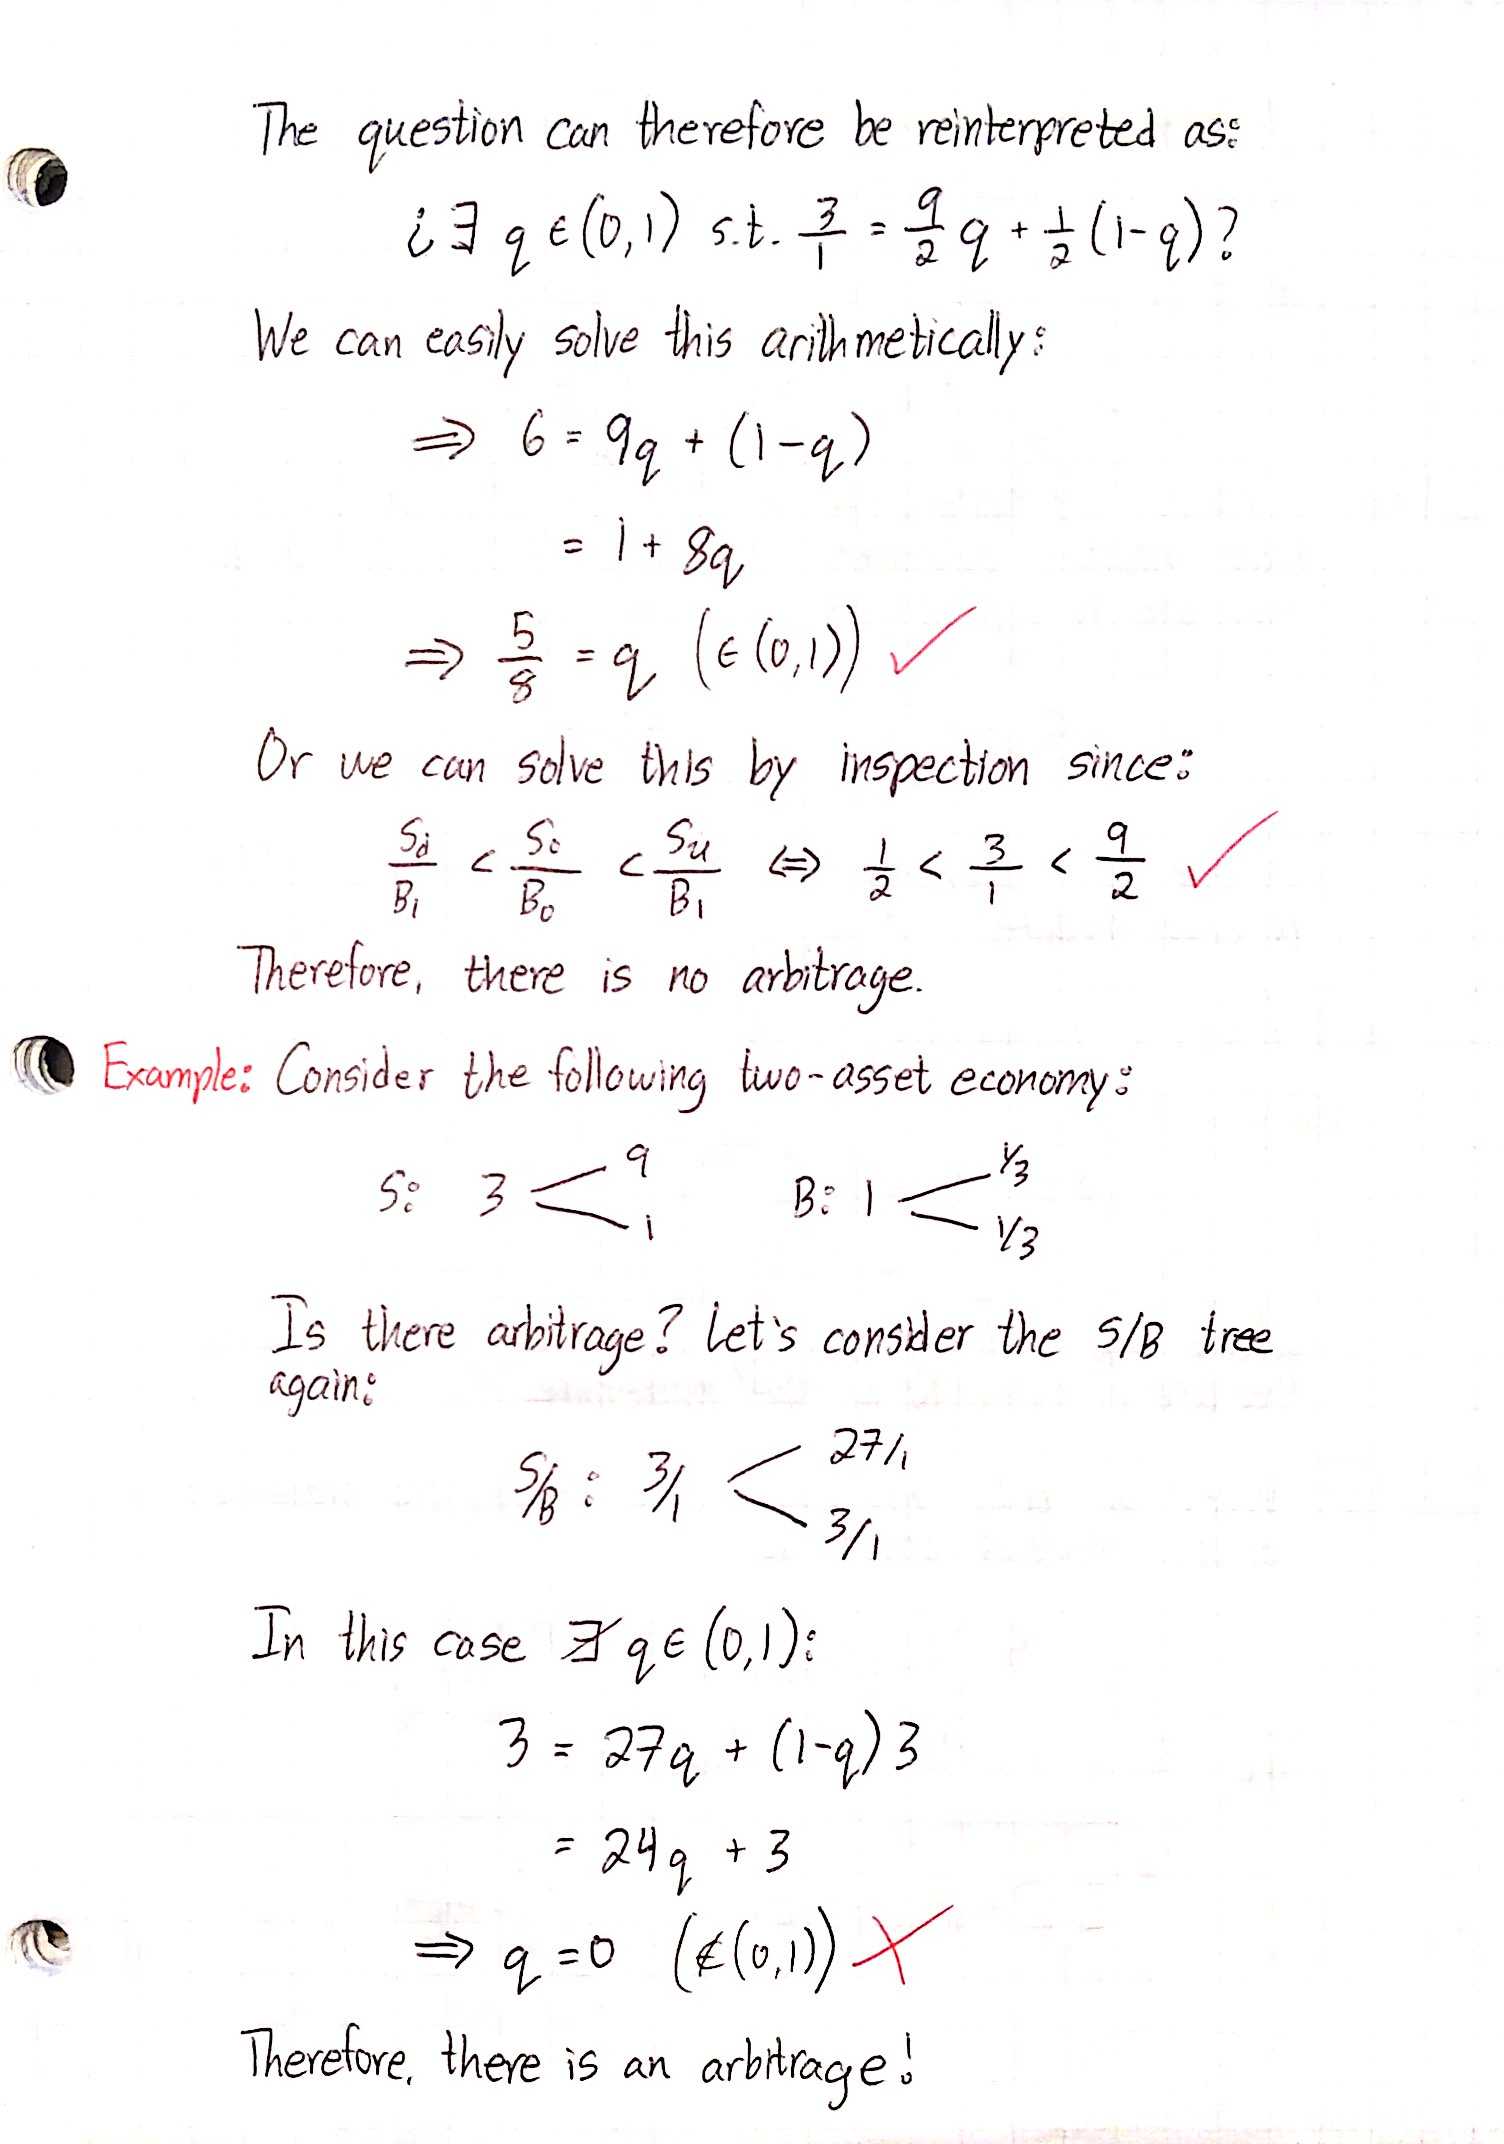 The question can therefore be reinterpreted as:
¿ ∃ q ∈ (0,1) s.t. 3/1 = 9/2 q + 1/2 (1-q) ?
We can easily solve this arithmetically:
⇒ 6 = 9q + (1-q)
= 1 + 8q
⇒ 5/8 = q (∈ (0,1)) ✓
Or we can solve this by inspection since:
S_d/B_1 < S_0/B_0 < S_u/B_1 ⇔ 1/2 < 3/1 < 9/2 ✓
Therefore, there is no arbitrage.
Example: Consider the following two-asset economy:
S: 3 < 9 1 B: 1 < 1/3 1/3
Is there arbitrage? Let's consider the S/B tree
again:
S/B : 3/1 < 27/1 3/1
In this case ∄ q ∈ (0,1):
3 = 27q + (1-q) 3
= 24q + 3
⇒ q = 0 (∉ (0,1)) ✗
Therefore, there is an arbitrage!